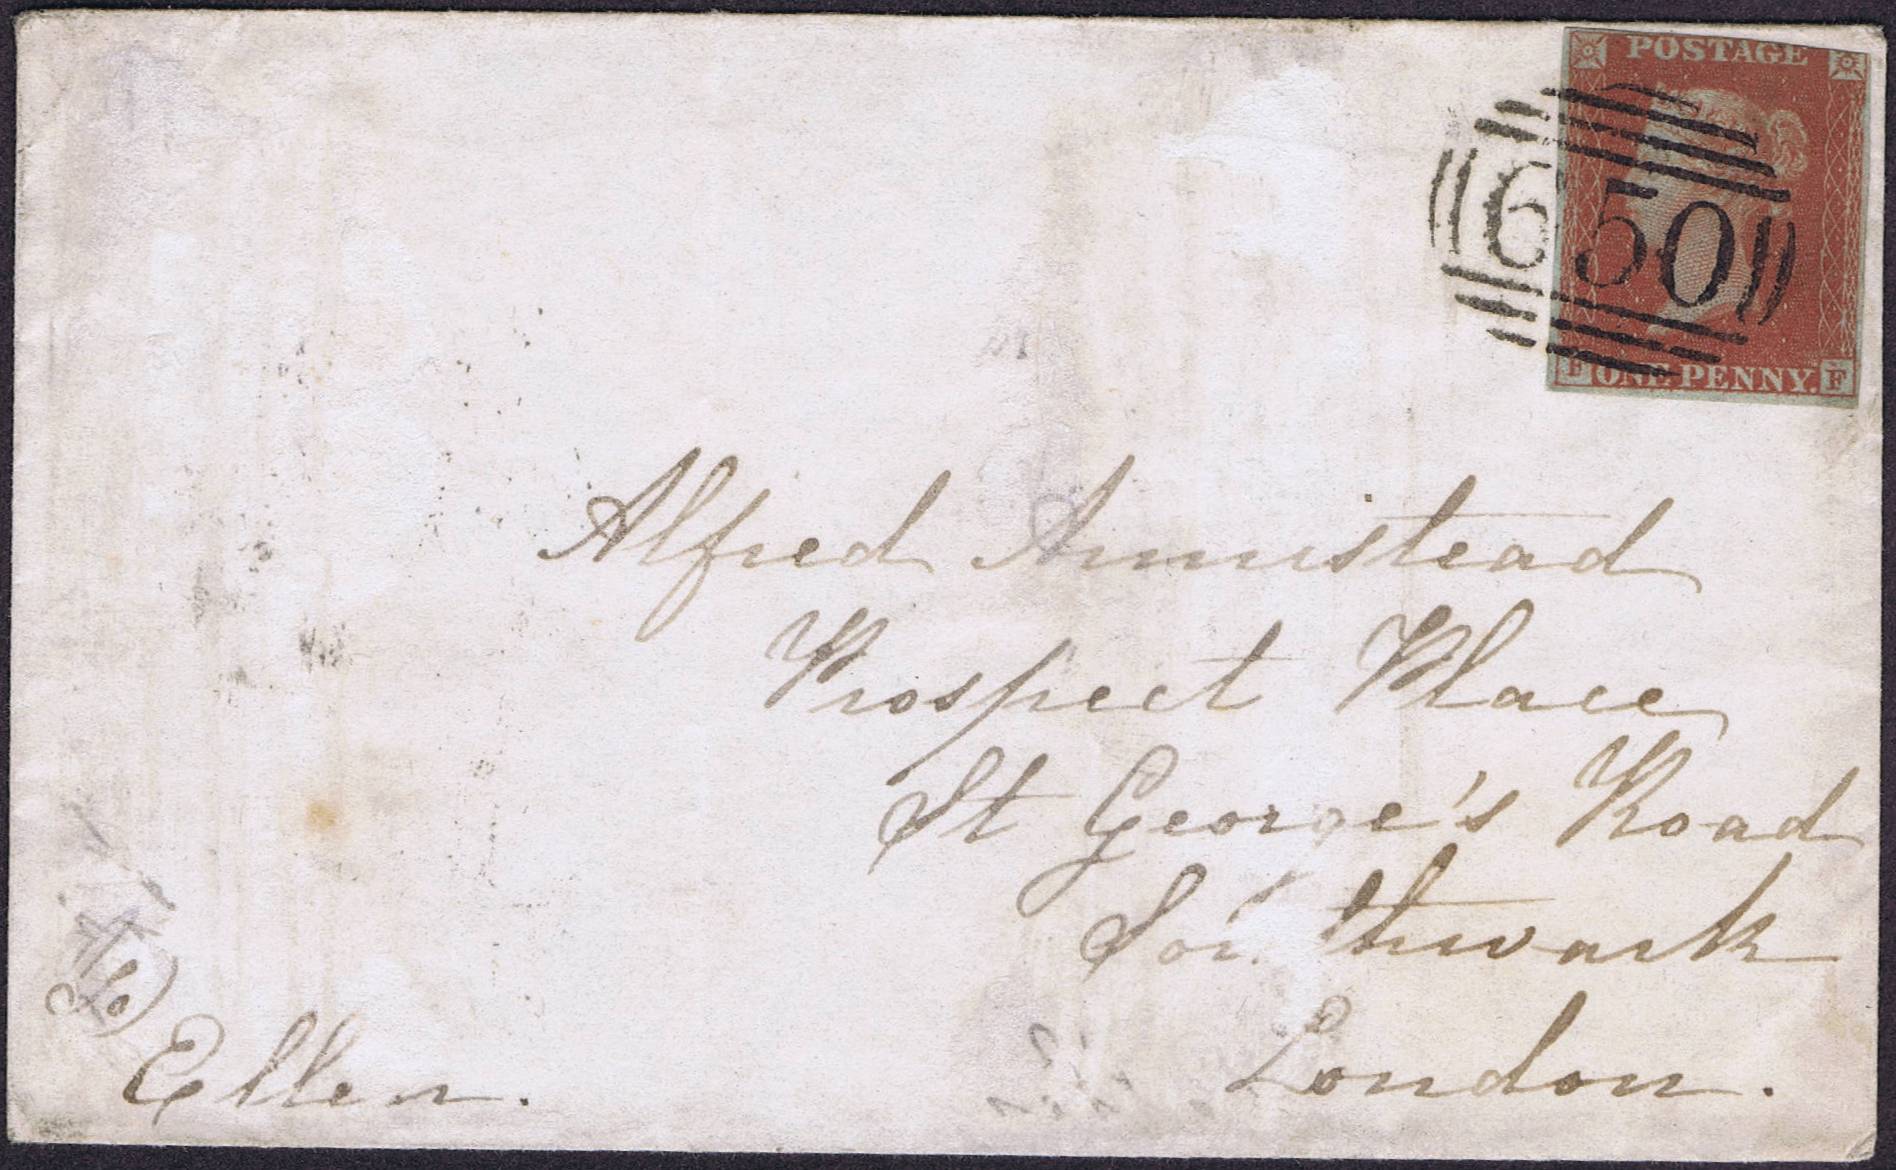 POSTAGE
650
F ONE PENNY. F
Alfred Armistead
Prospect Place
St George's Road
Southwark
London.
Ellen.